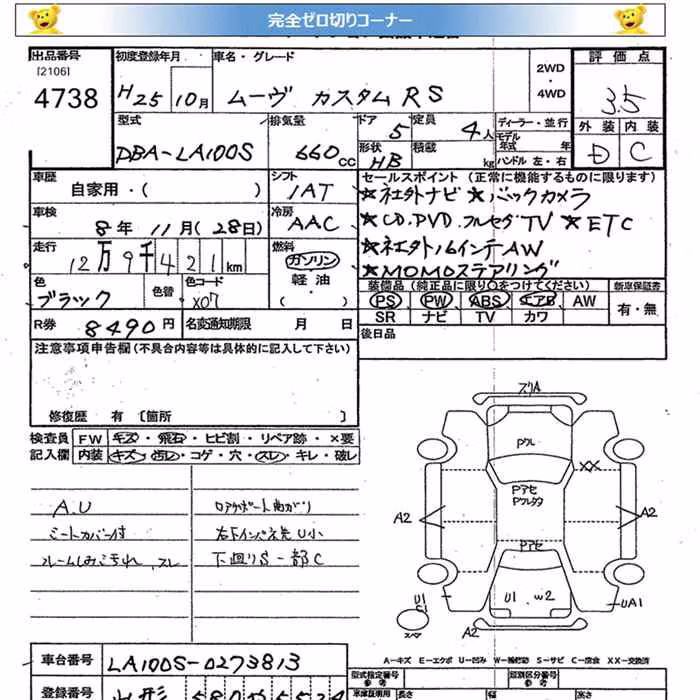 完全ゼロ切りコーナー
出品番号 初度登録年月 車名・グレード 評価点
[2106]
4738 H25 10月 ムーヴ カスタム RS 2WD ・ 4WD 3.5
型式 排気量 ドア 定員 ディーラー・並行 外装 内装
DBA-LA100S 660cc 5 4人 モデル年式 年 D C
形状 HB 積載 kg ハンドル 左・右
車歴 自家用・( ) シフト IAT セールスポイント(正常に機能するものに限ります)
車検 8年 11月(28日) 冷房 AAC ★社外ナビ ★バックカメラ
★CD.DVD.フルセグTV ★ETC
走行 12万9千421km 燃料 ガソリン ・ 軽油 ・ ( ) ★社外14インチAW
★MOMOステアリング
色 ブラック 色替 色コード X07 装備品(純正品に限り○をつけてください) 新車保証書
PS PW ABS エアB AW 有・無
SR ナビ TV カワ
R券 8490円 名変通知期限 月 日 後日品
注意事項申告欄(不具合内容等は具体的に記入して下さい)
修復歴 有 [箇所 ]
検査員 FW キズ・飛石・ヒビ割・リペア跡・×要
記入欄 内装 キズ・汚レ・コゲ・穴・スレ・キレ・破レ
A.U ロアサポート曲がり
シートカバー付
ルームしみ汚れ、スレ 下廻りS一部C
ズリA
Pクル
XX
Pアセ
Pクルタタ
A2
A2
Pアセ
U1 W2
U1
C1
UA1
スペア
A2
A-キズ E-エクボ U-凹み W-補修跡 S-サビ C-腐食 XX-交換済
車台番号 LA100S-0273813 型式指定番号 類別区分番号
登録番号 山形 長さ 幅 高さ